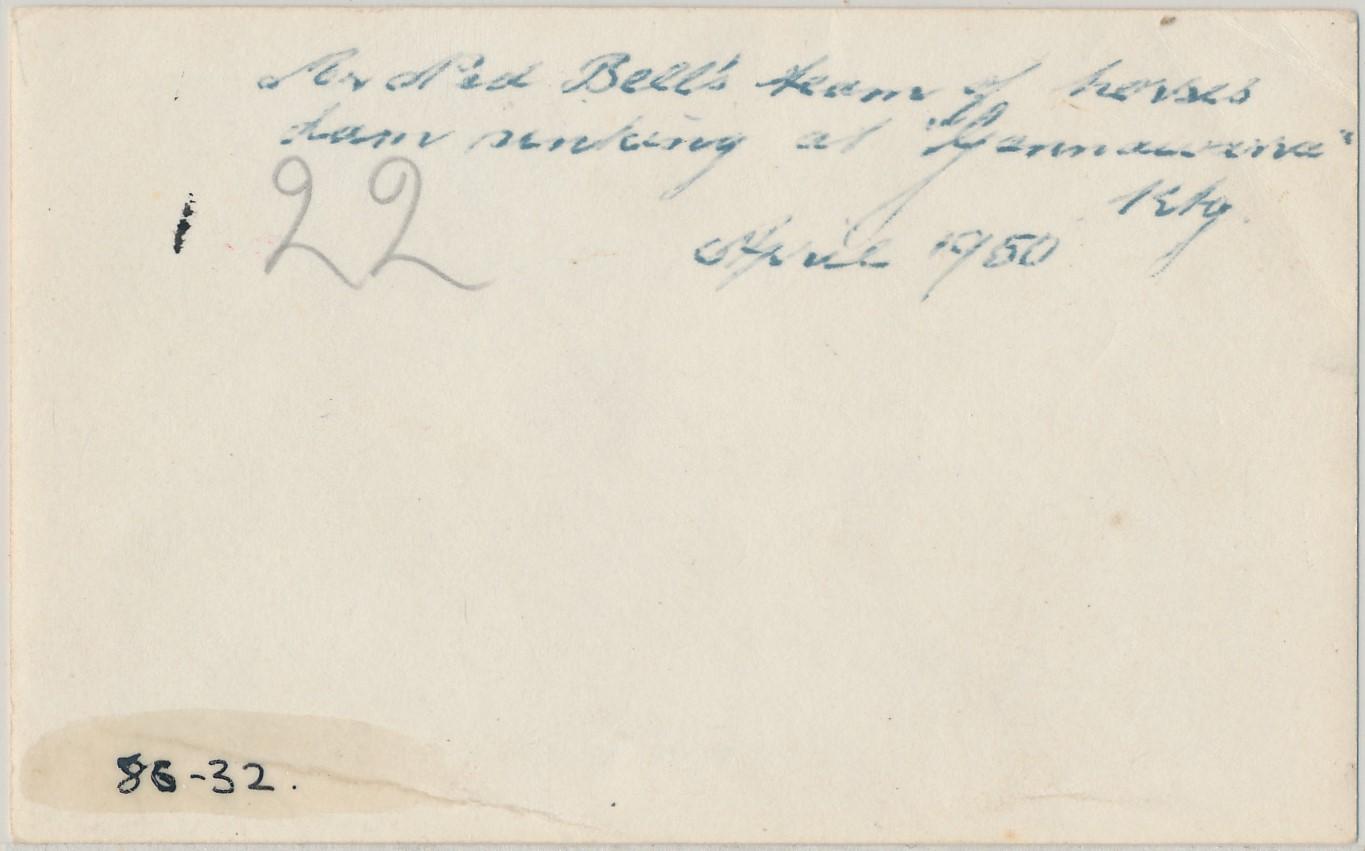 Mr Ned Bell's team of horses
dam sinking at "Yannawanna"
Stg.
April 1950
22
86-32.